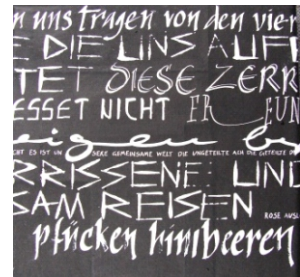 n uns tragen von den vier
E DIE UNS AUF
TET DIESE ZERR
ESSET NICHT ER FUN
eige
CHT ES IST UN DERE GEMEINSAME WELT DIE UNGETEILTE ACH DIE GETEILTE
RRISSENE UND
SAM REISEN
ROSE AUSL
pflücken himbeeren